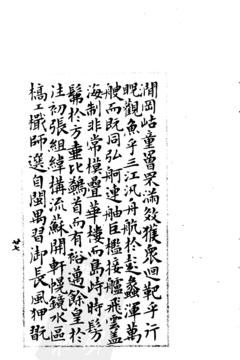 澗岡岵童罾罘滿效獲衆迴靶乎行
睨觀魚乎三江汎舟航於彭蠡渾萬
艘而既同弘舸連舳巨檻接艫飛雲蓋
海制非常模疊華樓而島峙時髣
髴於方壺比鷁首而有裕邁餘皇於
往初張組幃構流蘇開軒幌鏡水區
槁工檝師選自閩禺習御長風狎翫